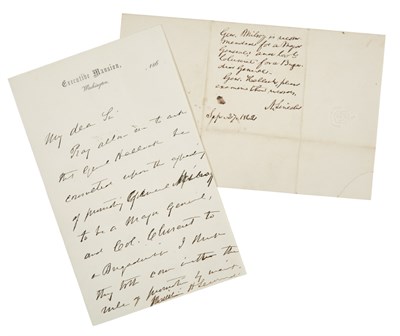 Executive Mansion,
Washington, 186
My dear Sir
Pray allow me to ask
that Genl Halleck be
consulted upon the
of promoting General Milroy
to be a Major General,
and Col. Cluseret to
a Brigadier. I think
they both come within the
rule of promotion by merit.
Gen. Milroy is recom
mended for a Major
General; and Col.
Cluseret for a Briga
dier General.
Gen. Halleck, please
examine these cases.
A. Lincoln
Sep. 1862